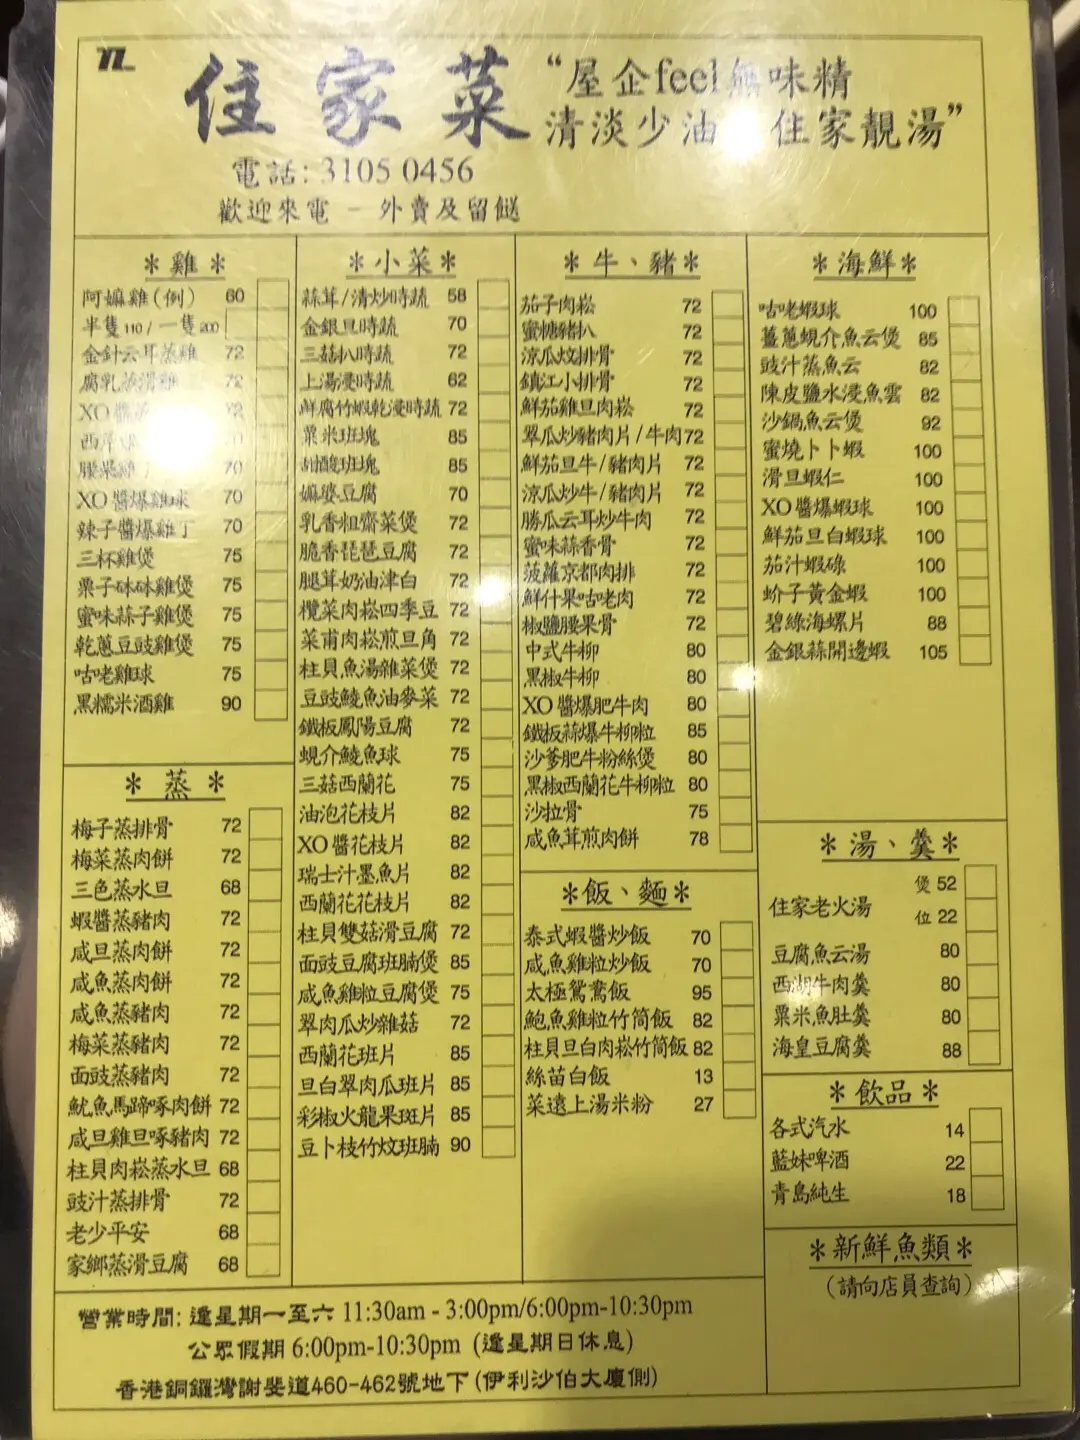 住家菜
“屋企feel無味精
清淡少油 住家靚湯”
電話: 3105 0456
歡迎來電 - 外賣及留餸
＊雞＊
阿嫲雞(例) 60
半隻110/一隻200
金針云耳蒸雞 72
腐乳蒸滑雞 72
XO醬蒸
西岸
腰果雞 70
XO醬爆雞球 70
辣子醬爆雞丁 70
三杯雞煲 75
栗子砵砵雞煲 75
蜜味蒜子雞煲 75
乾蔥豆豉雞煲 75
咕咾雞球 75
黑糯米酒雞 90
＊蒸＊
梅子蒸排骨 72
梅菜蒸肉餅 72
三色蒸水旦 68
蝦醬蒸豬肉 72
咸旦蒸肉餅 72
咸魚蒸肉餅 72
咸魚蒸豬肉 72
梅菜蒸豬肉 72
面豉蒸豬肉 72
魷魚馬蹄啄肉餅 72
咸旦雞旦啄豬肉 72
柱貝肉崧蒸水旦 68
豉汁蒸排骨 72
老少平安 68
家鄉蒸滑豆腐 68
＊小菜＊
蒜茸/清炒時蔬 58
金銀旦時蔬 70
三菇扒時蔬 72
上湯浸時蔬 62
鮮腐竹蝦乾浸時蔬 72
粟米班塊 85
甜酸班塊 85
嫲婆豆腐 70
乳香粗齋菜煲 72
脆香琵琶豆腐 72
腿茸奶油津白 72
欖菜肉崧四季豆 72
菜甫肉崧煎旦角 72
柱貝魚湯雜菜煲 72
豆豉鯪魚油麥菜 72
鐵板鳳陽豆腐 72
蜆介鯪魚球 75
三菇西蘭花 75
油泡花枝片 82
XO醬花枝片 82
瑞士汁墨魚片 82
西蘭花花枝片 82
柱貝雙菇滑豆腐 72
面豉豆腐班腩煲 85
咸魚雞粒豆腐煲 75
翠肉瓜炒雜菇 72
西蘭花班片 85
旦白翠肉瓜班片 85
彩椒火龍果斑片 85
豆卜枝竹炆班腩 90
＊牛、豬＊
茄子肉崧 72
蜜糖豬扒 72
涼瓜炆排骨 72
鎮江小排骨 72
鮮茄雞旦肉崧 72
翠瓜炒豬肉片/牛肉 72
鮮茄旦牛/豬肉片 72
涼瓜炒牛/豬肉片 72
勝瓜云耳炒牛肉 72
蜜味蒜香骨 72
菠蘿京都肉排 72
鮮什果咕咾肉 72
椒鹽腰果骨 72
中式牛柳 80
黑椒牛柳 80
XO醬爆肥牛肉 80
鐵板蒜爆牛柳粒 85
沙爹肥牛粉絲煲 80
黑椒西蘭花牛柳粒 80
沙拉骨 75
咸魚茸煎肉餅 78
＊飯、麵＊
泰式蝦醬炒飯 70
咸魚雞粒炒飯 70
太極鴛鴦飯 95
鮑魚雞粒竹筒飯 82
柱貝旦白肉崧竹筒飯 82
絲苗白飯 13
菜遠上湯米粉 27
＊海鮮＊
咕咾蝦球 100
薑蔥蜆介魚云煲 85
豉汁蒸魚云 82
陳皮鹽水浸魚雲 82
沙鍋魚云煲 92
蜜燒卜卜蝦 100
滑旦蝦仁 100
XO醬爆蝦球 100
鮮茄旦白蝦球 100
茄汁蝦碌 100
蚧子黃金蝦 100
碧綠海螺片 88
金銀蒜開邊蝦 105
＊湯、羹＊
住家老火湯 煲 52
位 22
豆腐魚云湯 80
西湖牛肉羹 80
粟米魚肚羹 80
海皇豆腐羹 88
＊飲品＊
各式汽水 14
藍妹啤酒 22
青島純生 18
＊新鮮魚類＊
(請向店員查詢)
營業時間: 逢星期一至六 11:30am - 3:00pm/6:00pm-10:30pm
公眾假期 6:00pm-10:30pm (逢星期日休息)
香港銅鑼灣謝斐道460-462號地下(伊利沙伯大廈側)